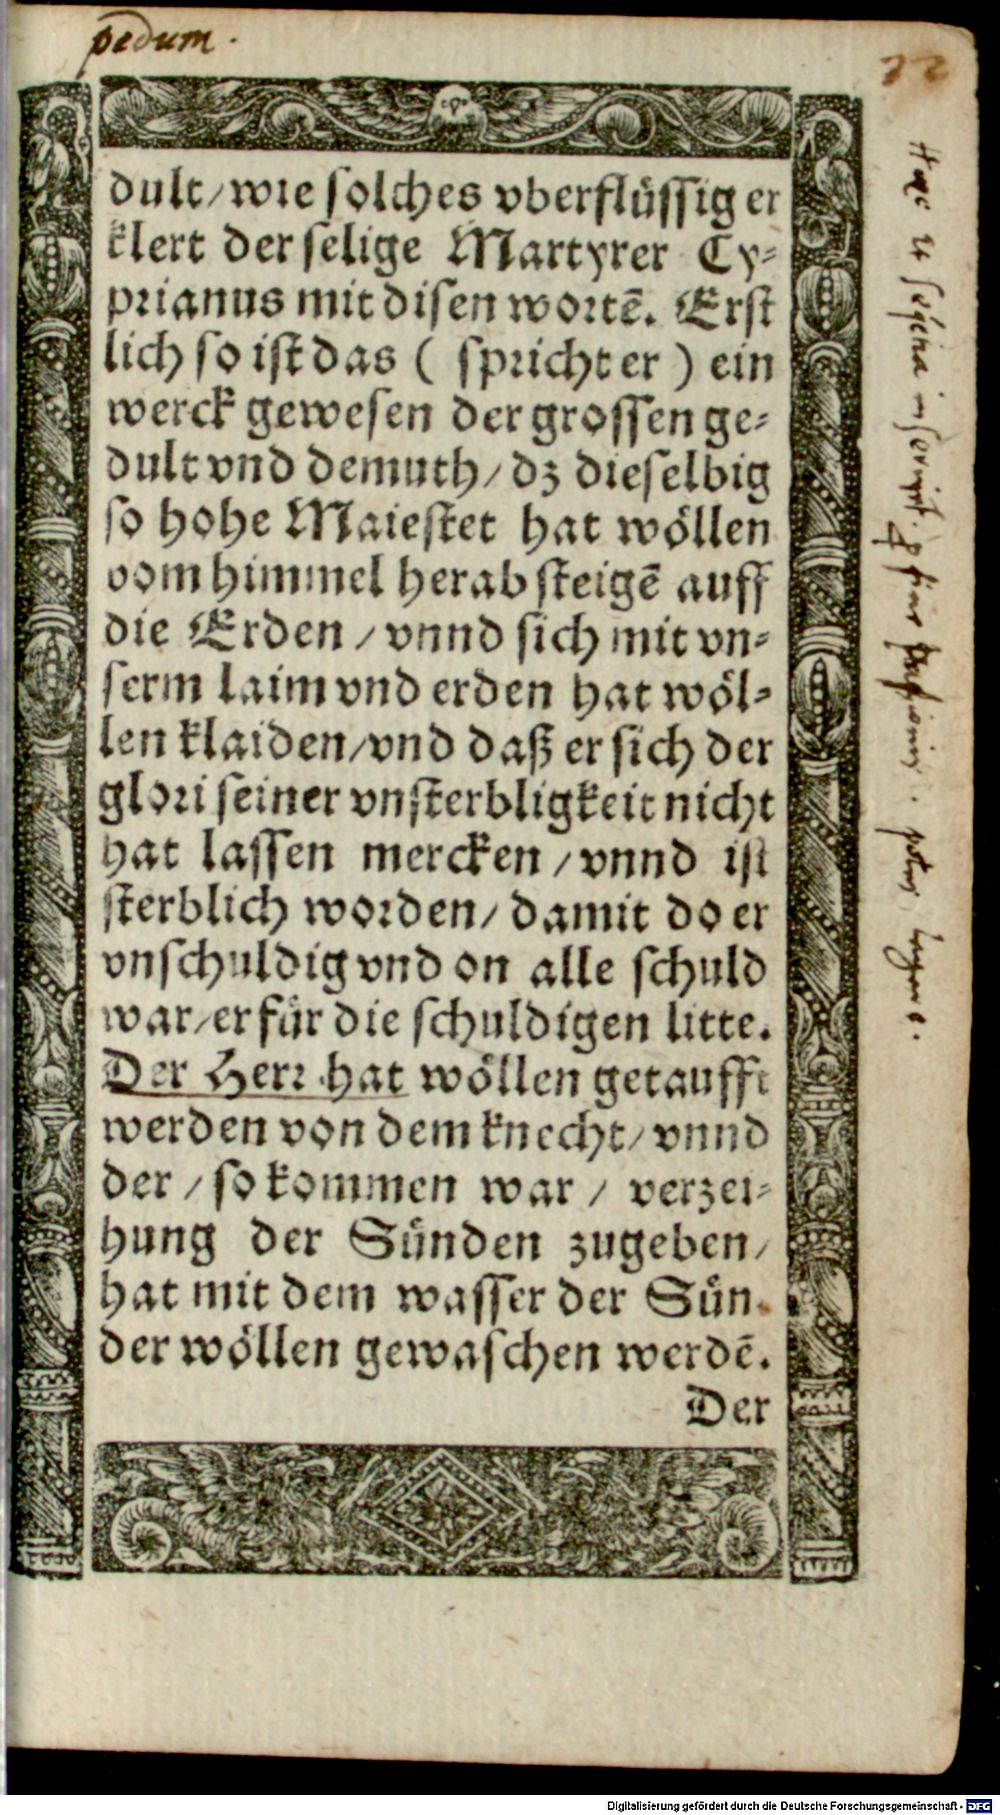 pedum.
22
dult/wie solches vberflüssig er
klert der selige Martyrer Cy-
prianus mit disen wortẽ. Erst
lich so ist das ( spricht er ) ein
werck gewesen der grossen ge-
dult vnd demuth/dz dieselbig
so hohe Maiestet hat wöllen
vom himmel herab steigẽ auff
die Erden/vnnd sich mit vn-
serm laim vnd erden hat wöl-
len klaiden/vnd daß er sich der
glori seiner vnsterbligkeit nicht
hat lassen mercken/vnnd ist
sterblich worden/damit do er
vnschuldig vnd on alle schuld
war/er für die schuldigen litte.
Der Herr hat wöllen getaufft
werden von dem knecht/vnnd
der/so kommen war/verzei-
hung der Sünden zugeben/
hat mit dem wasser der Sün-
der wöllen gewaschen werdẽ.
Der
Digitalisierung gefördert durch die Deutsche Forschungsgemeinschaft - DFG